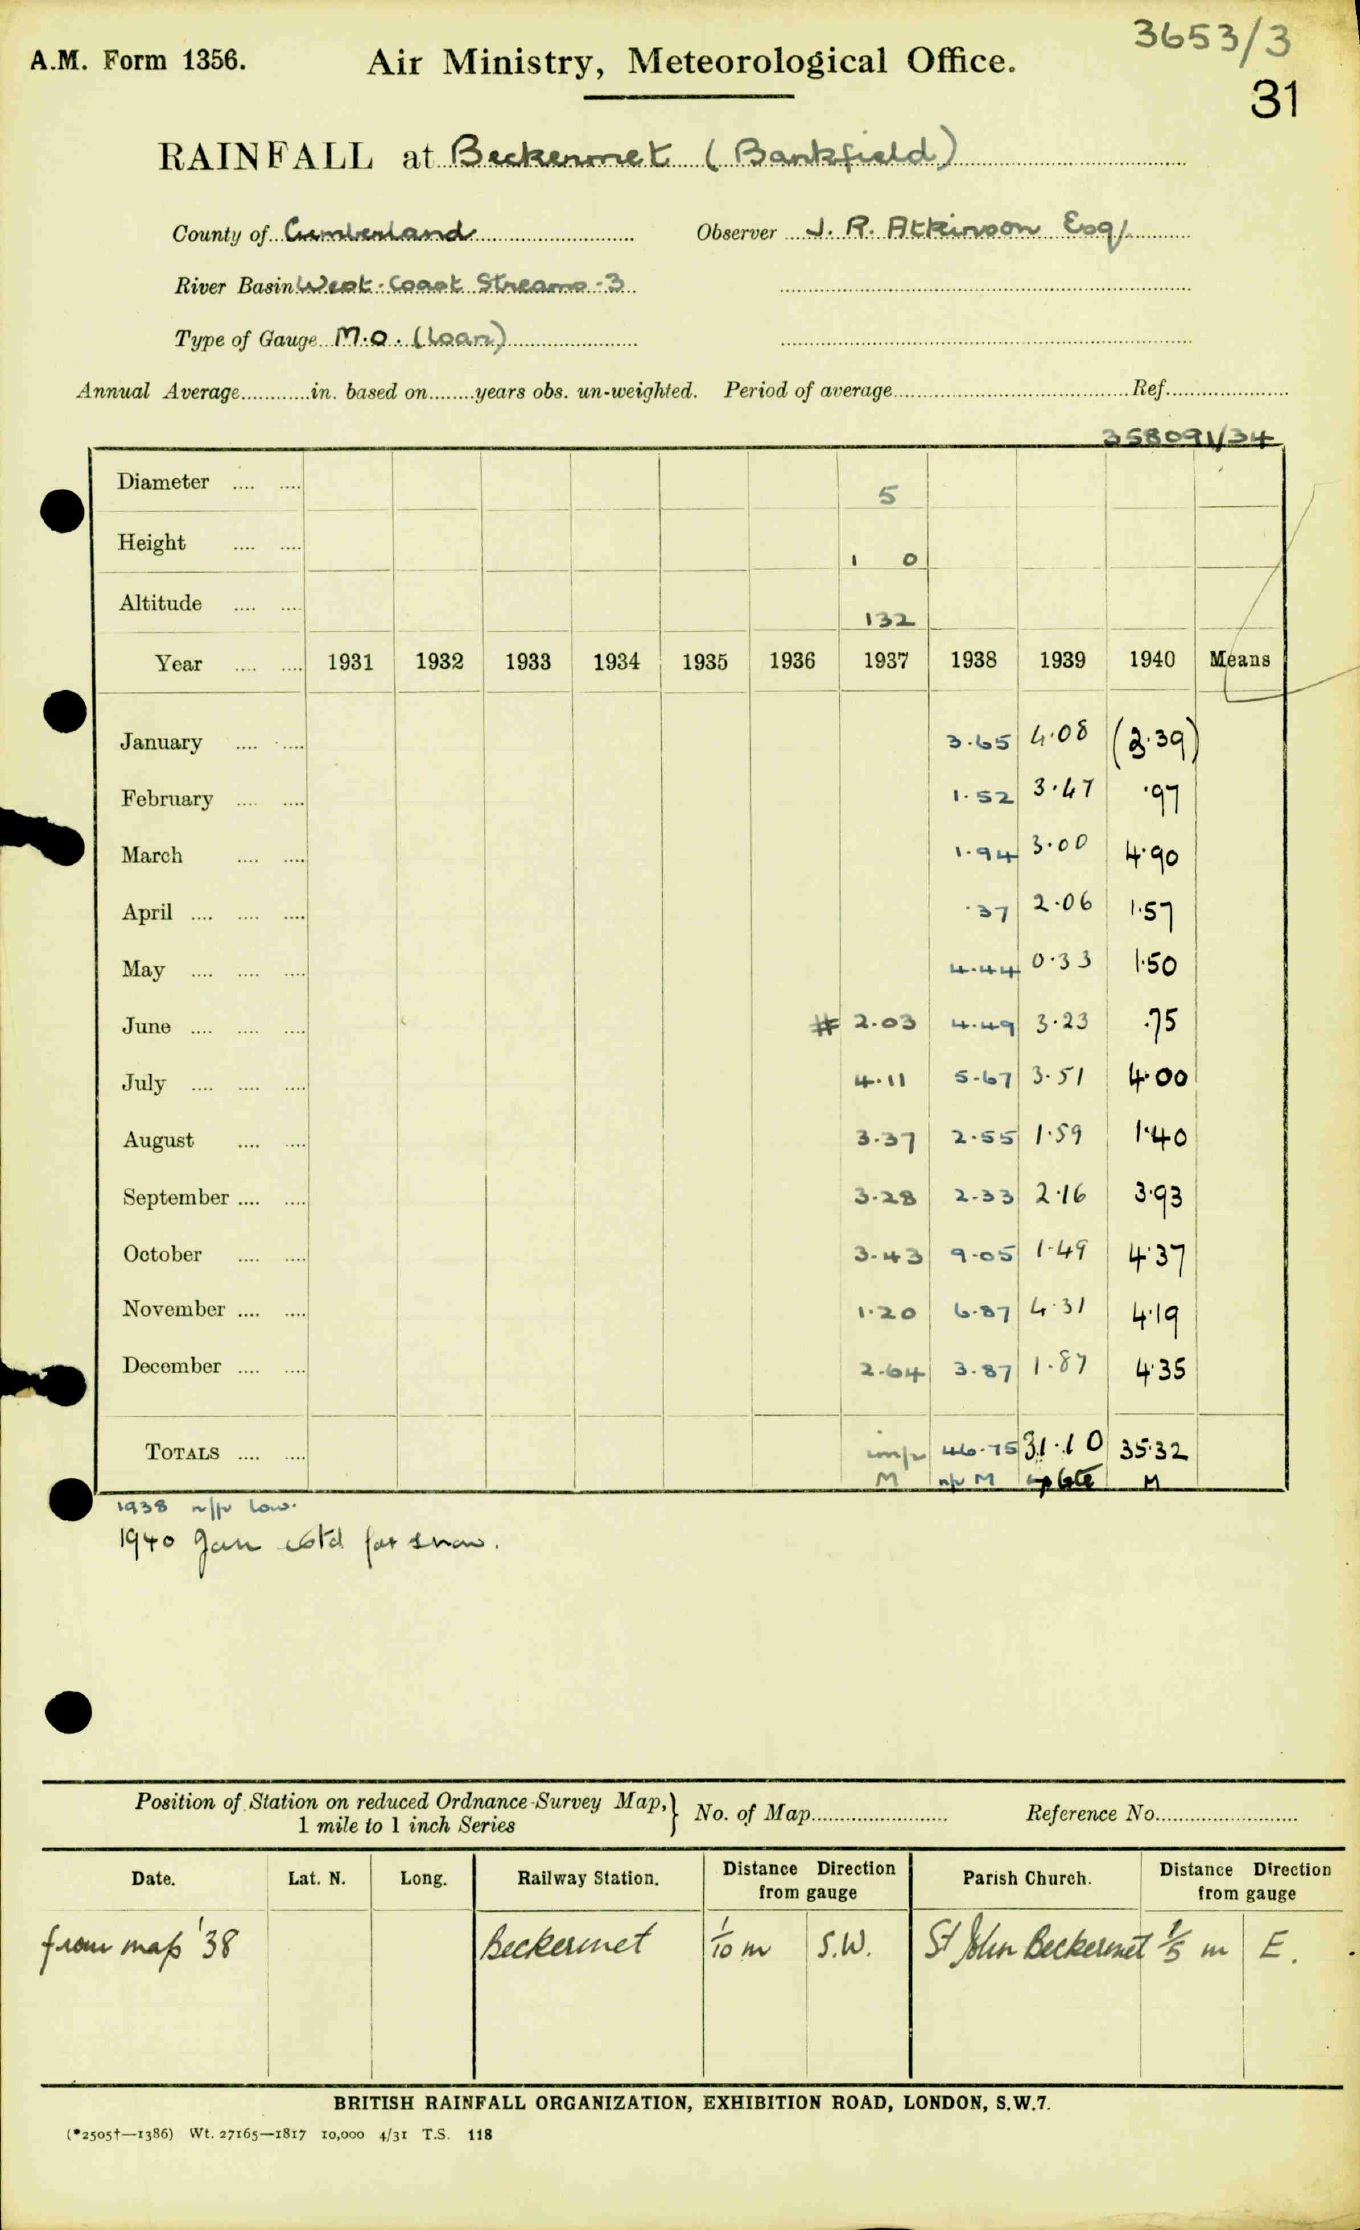 3653/3
A.M. Form 1356. Air Ministry, Meteorological Office.
31
RAINFALL at Beckermet (Bankfield)
County of Cumberland Observer J. R. Atkinson Esq/
River Basin West Coast Streams - 3
Type of Gauge M.O. (Loan)
Annual Average in. based on years obs. un-weighted. Period of average Ref.
358091/34
Diameter .... .... 5
Height .... .... 1 0
Altitude .... .... 132
Year .... .... 1931 1932 1933 1934 1935 1936 1937 1938 1939 1940 Means
January .... .... 3.65 4.08 (2.39)
February .... .... 1.52 3.47 .97
March .... .... 1.94 3.00 4.90
April .... .... .... .37 2.06 1.57
May .... .... .... 4.44 0.33 1.50
June .... .... .... # 2.03 4.49 3.23 .75
July .... .... .... 4.11 5.67 3.51 4.00
August .... .... 3.37 2.55 1.59 1.40
September .... .... 3.28 2.33 2.16 3.93
October .... .... 3.43 9.05 1.49 4.37
November .... .... 1.20 6.87 4.31 4.19
December .... .... 2.64 3.87 1.87 4.35
TOTALS .... .... imp 46.75 31.10 35.32
M M M
1938 low.
1940 Jan estd for snow.
Position of Station on reduced Ordnance Survey Map, } No. of Map Reference No.
1 mile to 1 inch Series
Date. Lat. N. Long. Railway Station. Distance Direction from gauge Parish Church. Distance Direction from gauge
from map '38 Beckermet 1/10 m S.W. St John Beckermet 1/5 m E.
BRITISH RAINFALL ORGANIZATION, EXHIBITION ROAD, LONDON, S.W.7.
(*2505†—1386) Wt. 27165—1817 10,000 4/31 T.S. 118